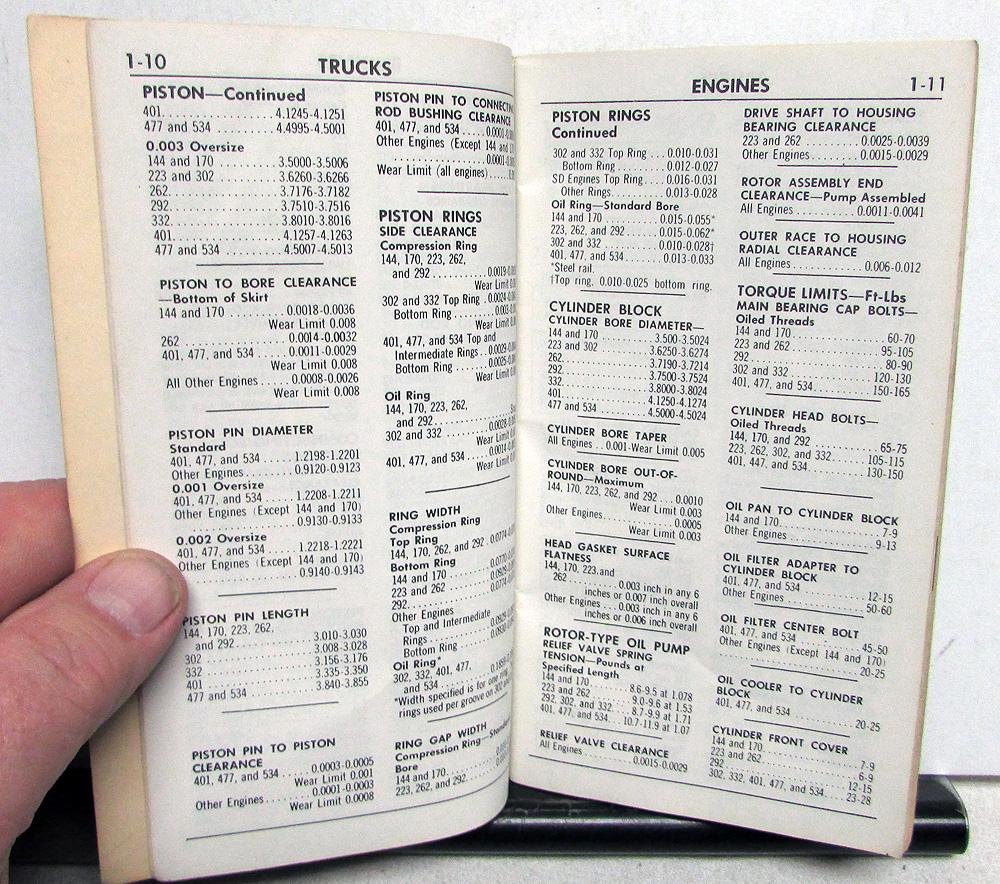 1-10
TRUCKS
PISTON—Continued
401 . . . . . . . . . . . . . . . . 4.1245-4.1251
477 and 534 . . . . . . . . . . 4.4995-4.5001
0.003 Oversize
144 and 170 . . . . . . . . . . 3.5000-3.5006
223 and 302 . . . . . . . . . . 3.6260-3.6266
262. . . . . . . . . . . . . . . . 3.7176-3.7182
292. . . . . . . . . . . . . . . . 3.7510-3.7516
332. . . . . . . . . . . . . . . . 3.8010-3.8016
401. . . . . . . . . . . . . . . . 4.1257-4.1263
477 and 534 . . . . . . . . . . 4.5007-4.5013
PISTON TO BORE CLEARANCE
—Bottom of Skirt
144 and 170 . . . . . . . . . . 0.0018-0.0036
Wear Limit 0.008
262 . . . . . . . . . . . . . . . . 0.0014-0.0032
401, 477, and 534 . . . . . . 0.0011-0.0029
Wear Limit 0.008
All Other Engines . . . . . . 0.0008-0.0026
Wear Limit 0.008
PISTON PIN DIAMETER
Standard
401, 477, and 534 . . . . . . 1.2198-1.2201
Other Engines . . . . . . . . . 0.9120-0.9123
0.001 Oversize
401, 477, and 534 . . . . . . 1.2208-1.2211
Other Engines (Except 144 and 170)
. . . . . . . . . . . . . . . . 0.9130-0.9133
0.002 Oversize
401, 477, and 534 . . . . . . 1.2218-1.2221
Other Engines (Except 144 and 170)
. . . . . . . . . . . . . . . . 0.9140-0.9143
PISTON PIN LENGTH
144, 170, 223, 262,
and 292 . . . . . . . . . . . . 3.010-3.030
302 . . . . . . . . . . . . . . . . 3.008-3.028
332 . . . . . . . . . . . . . . . . 3.156-3.176
401 . . . . . . . . . . . . . . . . 3.335-3.350
477 and 534 . . . . . . . . . . 3.840-3.855
PISTON PIN TO PISTON
CLEARANCE
401, 477, and 534 . . . . . . 0.0003-0.0005
Wear Limit 0.001
Other Engines . . . . . . . . . 0.0001-0.0003
Wear Limit 0.0008
PISTON PIN TO
ROD BUSHING CLEARANCE
401, 477, and 534
Other Engines (Except 144 and
Wear Limit (all engines)
PISTON RINGS
SIDE CLEARANCE
Compression Ring
144, 170, 223, 262,
and 292
Wear Limit
302 and 332 Top Ring
Bottom Ring
Wear Limit
401, 477, and 534 Top and
Intermediate Rings
Bottom Ring
Wear Limit
Oil Ring
144, 170, 223, 262,
and 292
302 and 332
Wear Limit
401, 477, and 534
Wear Limit
RING WIDTH
Compression Ring
Top Ring
144, 170, 262, and 292
Bottom Ring
144 and 170
223 and 262
292
Other Engines
Top and Intermediate
Rings
Bottom Ring
Oil Ring*
302, 332, 401, 477,
and 534
*Width specified is for one ring
rings used per groove on 302
RING GAP WIDTH
Compression Ring—
Bore
144 and 170
223, 262, and 292
ENGINES
1-11
PISTON RINGS
Continued
302 and 332 Top Ring . . . 0.010-0.031
Bottom Ring . . . . . . . . . 0.012-0.027
SD Engines Top Ring . . . . 0.016-0.031
Other Rings. . . . . . . . . . 0.013-0.028
Oil Ring—Standard Bore
144 and 170 . . . . . . . . . . 0.015-0.055*
223, 262, and 292 . . . . . . 0.015-0.062*
302 and 332 . . . . . . . . . . 0.010-0.028†
401, 477, and 534 . . . . . . 0.013-0.033
*Steel rail.
†Top ring. 0.010-0.025 bottom ring.
CYLINDER BLOCK
CYLINDER BORE DIAMETER—
144 and 170 . . . . . . . . . . 3.500-3.5024
223 and 302 . . . . . . . . . . 3.6250-3.6274
262. . . . . . . . . . . . . . . . 3.7190-3.7214
292. . . . . . . . . . . . . . . . 3.7500-3.7524
332. . . . . . . . . . . . . . . . 3.8000-3.8024
401. . . . . . . . . . . . . . . . 4.1250-4.1274
477 and 534 . . . . . . . . . . 4.5000-4.5024
CYLINDER BORE TAPER
All Engines . . . 0.001-Wear Limit 0.005
CYLINDER BORE OUT-OF-
ROUND—Maximum
144, 170, 223, 262, and 292 . . . 0.0010
Wear Limit 0.003
Other Engines. . . . . . . . . . . . 0.0005
Wear Limit 0.003
HEAD GASKET SURFACE
FLATNESS
144, 170, 223,and
262 . . . . . . . . . . 0.003 inch in any 6
inches or 0.007 inch overall
Other Engines . . . 0.003 inch in any 6
inches or 0.006 inch overall
ROTOR-TYPE OIL PUMP
RELIEF VALVE SPRING
TENSION—Pounds at
Specified Length
144 and 170 . . . . . . . . 8.6-9.5 at 1.078
223 and 262 . . . . . . . . 9.0-9.6 at 1.53
292, 302, and 332 . . . . . 8.7-9.9 at 1.71
401, 477, and 534 . . . . 10.7-11.9 at 1.07
RELIEF VALVE CLEARANCE
All Engines . . . . . . . . . . 0.0015-0.0029
DRIVE SHAFT TO HOUSING
BEARING CLEARANCE
223 and 262 . . . . . . . . . . 0.0025-0.0039
Other Engines . . . . . . . . . 0.0015-0.0029
ROTOR ASSEMBLY END
CLEARANCE—Pump Assembled
All Engines . . . . . . . . . . 0.0011-0.0041
OUTER RACE TO HOUSING
RADIAL CLEARANCE
All Engines . . . . . . . . . . 0.006-0.012
TORQUE LIMITS—Ft-Lbs
MAIN BEARING CAP BOLTS—
Oiled Threads
144 and 170 . . . . . . . . . . . . . 60-70
223 and 262 . . . . . . . . . . . . 95-105
292 . . . . . . . . . . . . . . . . . . 80-90
302 and 332 . . . . . . . . . . . 120-130
401, 477, and 534. . . . . . . . 150-165
CYLINDER HEAD BOLTS—
Oiled Threads
144, 170, and 292 . . . . . . . . . 65-75
223, 262, 302, and 332 . . . . 105-115
401, 447, and 534. . . . . . . . 130-150
OIL PAN TO CYLINDER BLOCK
144 and 170. . . . . . . . . . . . . . . 7-9
Other Engines . . . . . . . . . . . . 9-13
OIL FILTER ADAPTER TO
CYLINDER BLOCK
401, 477, and 534 . . . . . . . . . 12-15
Other Engines . . . . . . . . . . . . 50-60
OIL FILTER CENTER BOLT
401, 477, and 534 . . . . . . . . . 45-50
Other Engines (Except 144 and 170)
. . . . . . . . . . . . . . . . . . . . 20-25
OIL COOLER TO CYLINDER
BLOCK
401, 477, and 534
. . . . . . . . . . . . . . . . . . . . 20-25
CYLINDER FRONT COVER
144 and 170. . . . . . . . . . . . . . . 7-9
223 and 262 . . . . . . . . . . . . . . 6-9
292 . . . . . . . . . . . . . . . . . . 12-15
302, 332, 401, 477, and 534. . . . 23-28